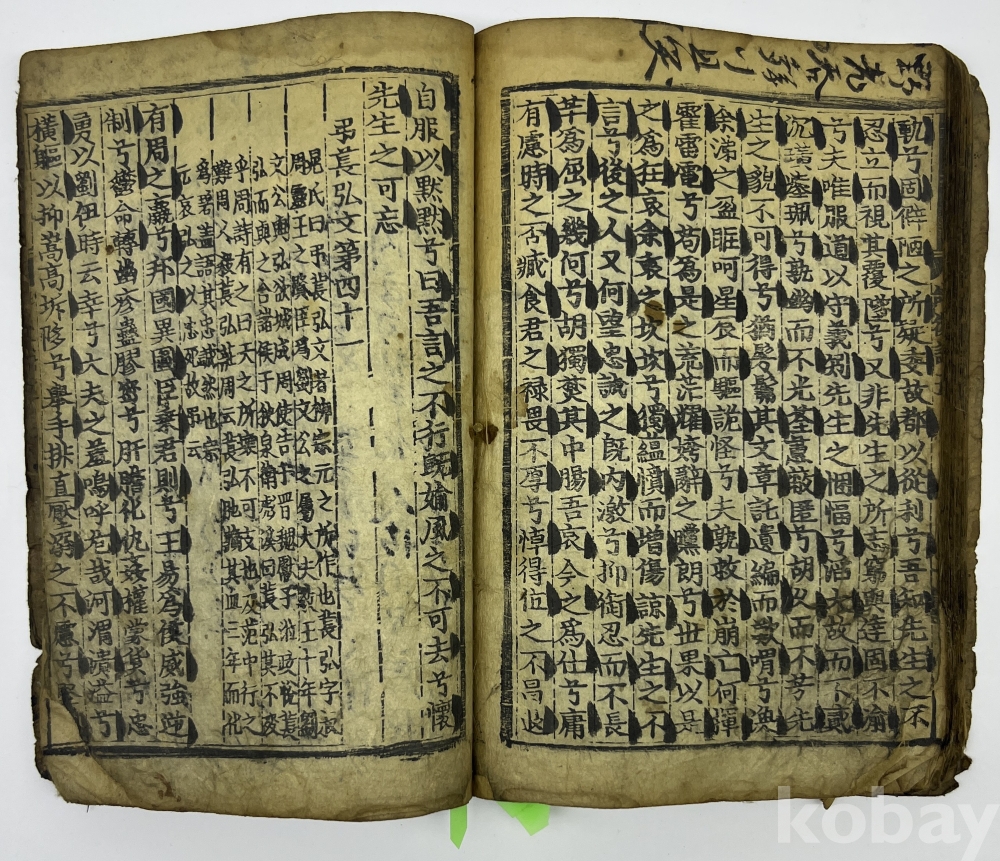 軌兮固僻陋之所疑委故都以從利兮吾知先生之不
忍立而視其覆墜兮又非先生之所志窮與達固不渝
兮夫唯服道以守義矧先生之悃愊兮滔大故而不貳
沉璜瘞珮兮孰幽而不光荃蕙蔽匿兮胡久而不芳先
生之貌不可得兮猶髣髴其文章託遺編而歎喟兮渙
余涕之盈眶呵星辰而驅詭怪兮夫孰救於崩亡何揮
霍雷電兮苟爲是之荒茫耀姱辭之矘朗兮世果以是
之爲狂哀余衷之坎坎兮獨蘊憤而增傷諒先生之不
言兮後之人又何望忠誠之旣內激兮抑銜忍而不長
芈爲屈之幾何兮胡獨焚其中腸吾哀今之爲仕兮庸
有慮時之否臧食君之祿畏不厚兮悼得位之不昌退
自服以默默兮曰吾言之不行旣媮風之不可去兮懷
先生之可忘
弔萇弘文第四十一
晁氏曰弔萇弘文者柳宗元之所作也萇弘字叔
周靈王之賢臣爲劉文公之屬大夫敬王十年劉
文公與弘欲城成周使告于晋魏獻子涖政悅萇
弘而與之合諸侯于狄泉衛彪傒曰萇弘其不沒
乎周詩有之曰天之所壞不可支也及范中行之
難周人殺萇弘莊周云萇弘胣藏其血三年而化
爲碧蓋語其忠誠然也宗
元哀弘之以忠死故弔云
有周之羸兮邦國異圖臣乘君則兮王易爲侯威強逆
制兮鬱命轉幽疹蠱膠密兮肝膽化仇姦權蒙貨兮忠
勇以劉伊時云幸兮大夫之羞嗚呼危哉河渭潰溢兮
橫軀以抑嵩高坼陊兮舉手排直壓溺之不慮兮
kobay